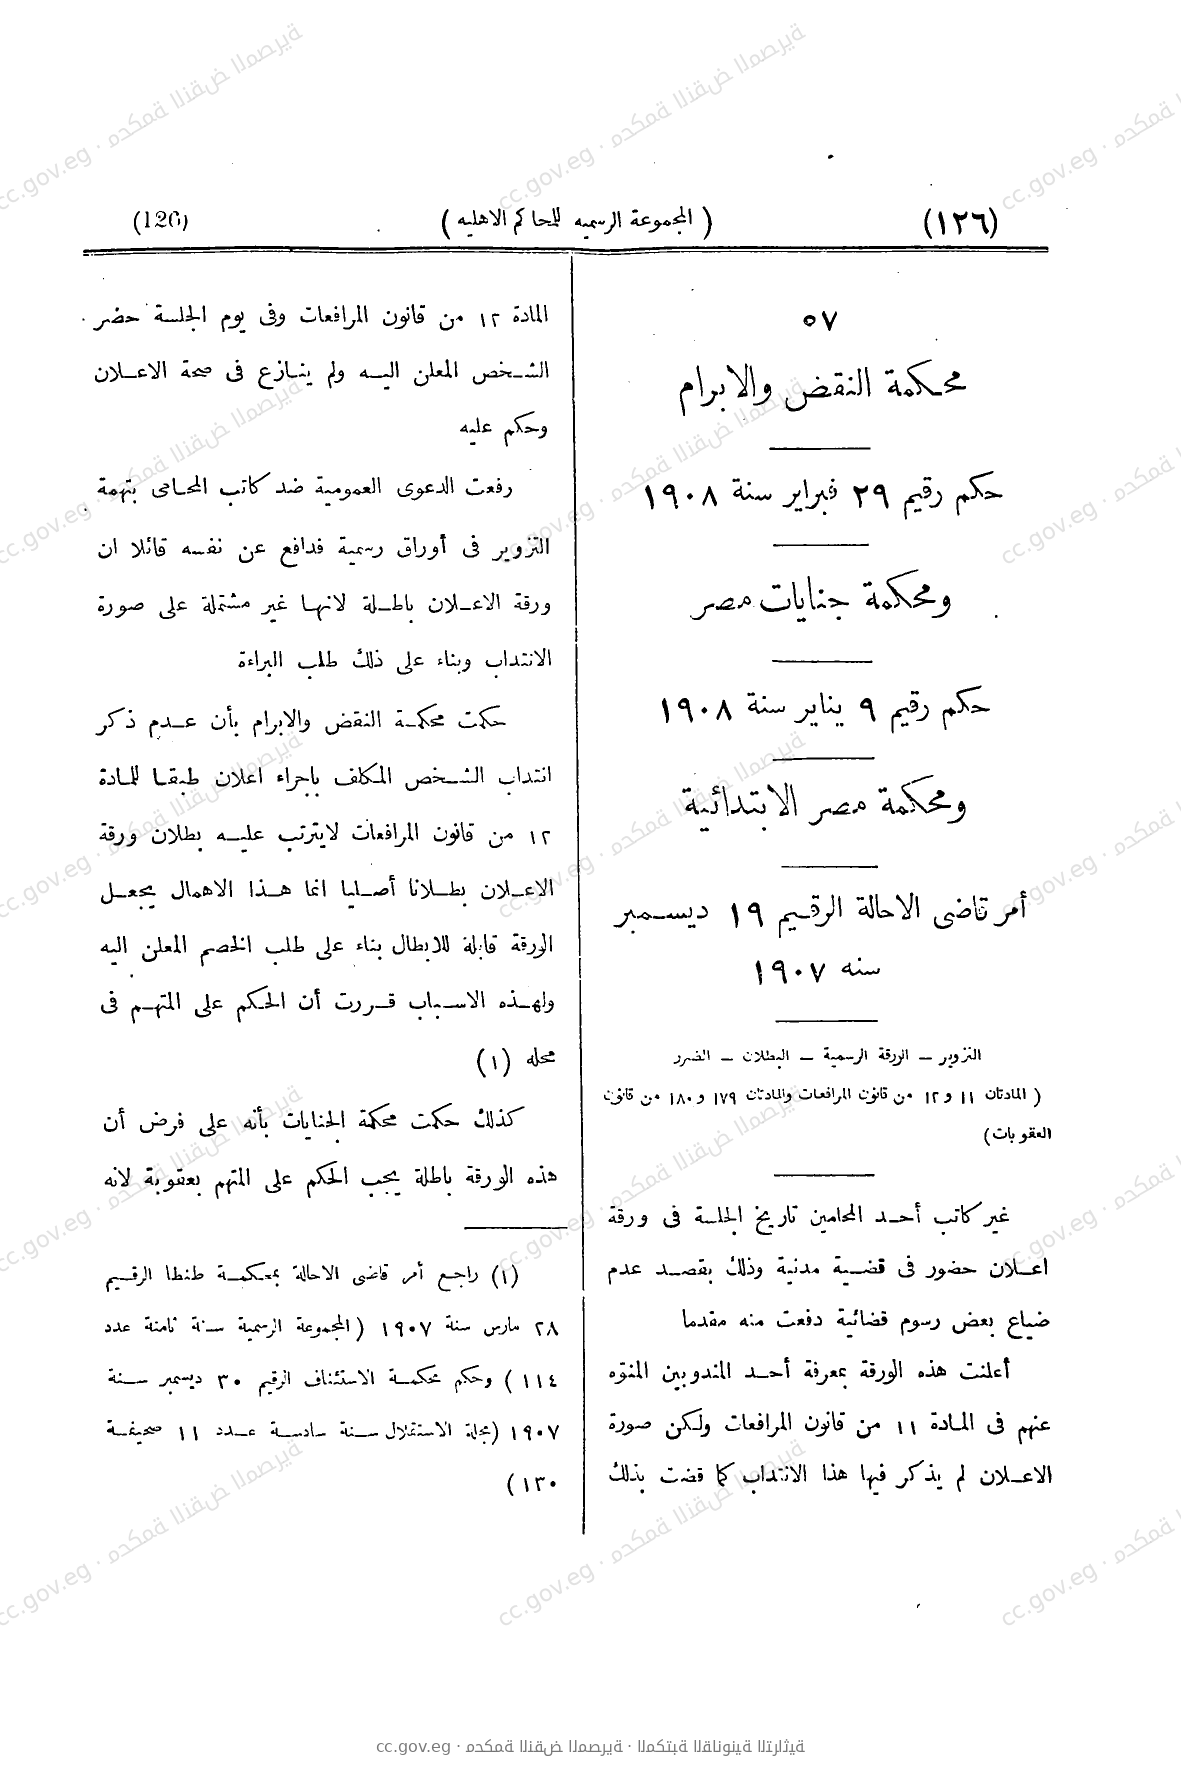 (١٢٦)
( المجموعة الرسميه للمحاكم الاهليه )
(126)
٥٧
محكمة النقض والابرام
حكم رقيم ٢٩ فبراير سنة ١٩٠٨
ومحكمة جنايات مصر
حكم رقيم ٩ يناير سنة ١٩٠٨
ومحكمة مصر الابتدائية
أمر قاضى الاحالة الرقيم ١٩ ديسمبر
سنه ١٩٠٧
التزوير – الورقة الرسمية – البطلان – الضرر
( المادتان ١١ و ١٢ من قانون المرافعات والمادتان ١٧٩ و ١٨٠ من قانون
العقوبات)
غير كاتب أحد المحامين تاريخ الجلسة فى ورقة
اعلان حضور فى قضية مدنية وذلك بقصد عدم
ضياع بعض رسوم قضائية دفعت منه مقدما
أعلنت هذه الورقة بمعرفة أحد المندوبين المنوّه
عنهم فى المادة ١١ من قانون المرافعات ولكن صورة
الاعلان لم يذكر فيها هذا الانتداب كما قضت بذلك
المادة ١٢ من قانون المرافعات وفى يوم الجلسة حضر
الشخص المعلن اليه ولم ينازع فى صحة الاعلان
وحكم عليه
رفعت الدعوى العمومية ضد كاتب المحامى بتهمة
التزوير فى أوراق رسمية فدافع عن نفسه قائلا ان
ورقة الاعلان باطلة لانها غير مشتملة على صورة
الانتداب وبناء على ذلك طلب البراءة
حكمت محكمة النقض والابرام بأن عدم ذكر
انتداب الشخص المكلف باجراء اعلان طبقا للمادة
١٢ من قانون المرافعات لايترتب عليه بطلان ورقة
الاعلان بطلانا أصليا انما هذا الاهمال يجعل
الورقة قابلة للابطال بناء على طلب الخصم المعلن اليه
ولهذه الاسباب قررت أن الحكم على المتهم فى
محله (١)
كذلك حكمت محكمة الجنايات بأنه على فرض أن
هذه الورقة باطلة يجب الحكم على المتهم بعقوبة لانه
(١) راجع أمر قاضى الاحالة بمحكمة طنطا الرقيم
٢٨ مارس سنة ١٩٠٧ (المجموعة الرسمية سنة ثامنة عدد
١١٤) وحكم محكمة الاستئناف الرقيم ٣٠ ديسمبر سنة
١٩٠٧ (مجلة الاستقلال سنة سادسة عدد ١١ صحيفة
١٣٠)
cc.gov.eg · محكمة النقض المصرية · المكتبة القانونية التراثية